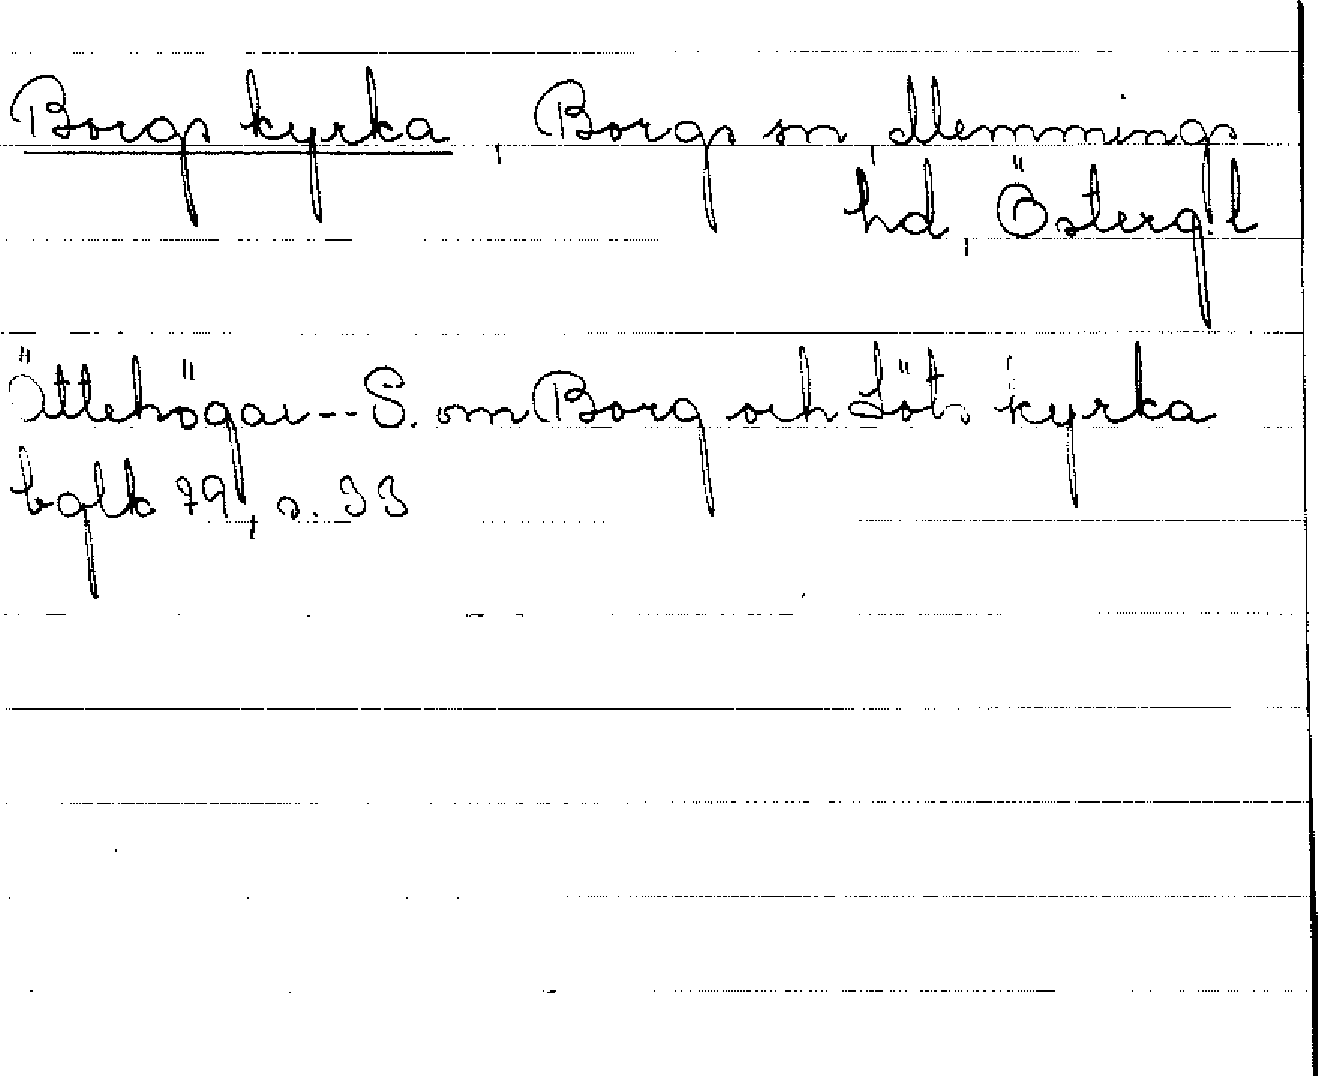 Borgs kyrka, Borgs sn, Memmings
hd, Östergl
Ättehögar--S. om Borg och Löts kyrka
bglk 79, s. 33